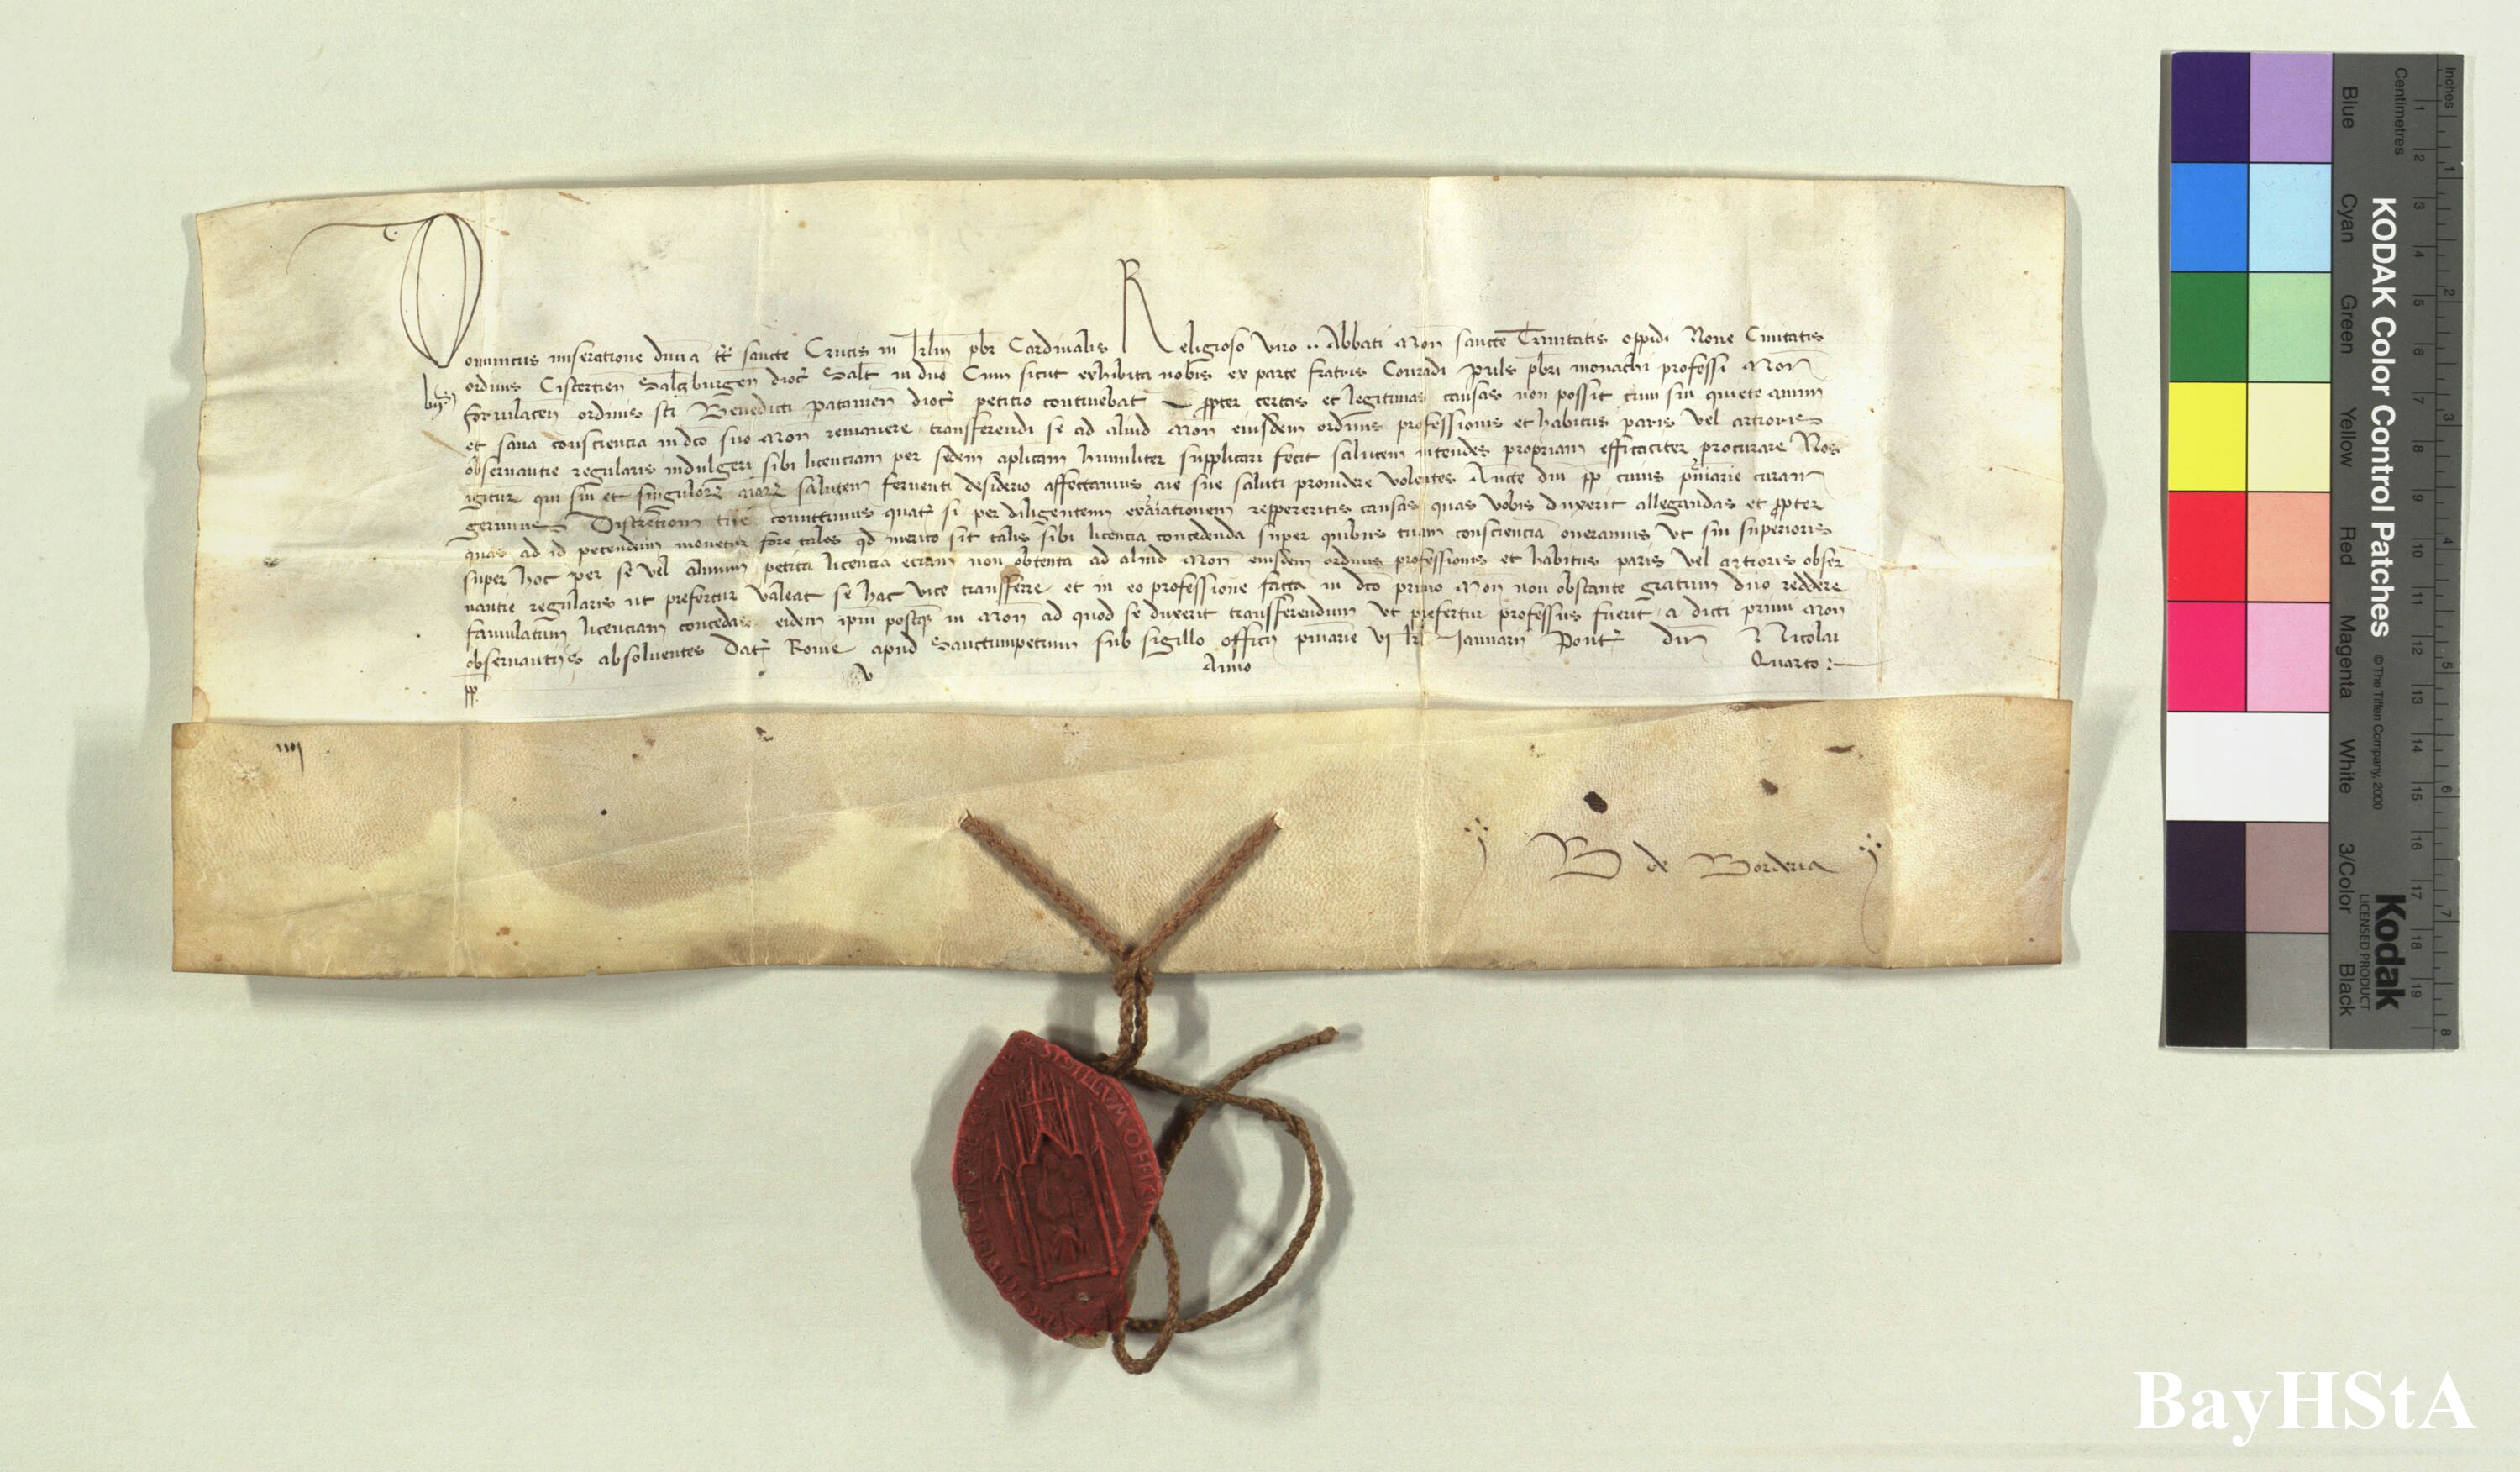 Dominicus miseratione diuīa tt̄ sancte Crucis in Jrlm̄ pbr̄ Cardinalis Religioso viro .. Abbati Mon̄ sancte Trinitatis oppidi Noue Ciuitatis
ordinis Cistercien̄ Saltzburgen̄ dioc̄ Salt̄ in dn̄o Cum sicut exhibita nobis ex parte fratris Conradi pbr̄i monachi professi Mon̄
ordinis sc̄i Benedicti patauien̄ dioc̄ petitio continebat ꝓpter certas et legitimas causas non possit cum sui quiete animi
et sana consciencia in dc̄o suo Mon̄ remanere transferendi se ad aliud Mon̄ eiusdem ordinis professionis et habitus paris vel artioris
obseruantie regularis indulgeri sibi licenciam per sedem aplicam humiliter supplicari fecit salutem intendēs propriam efficaciter procurare Nos
igitur qui sui et singulor̄ aīar̄ salutem feruenti desiderio affectamus aīe sue saluti prouidere volentes Aucte dn̄i pp̄ cuius pn̄iarie curam
gerimus Discretioni tue committimus quat̄ si per diligentem exaīationem reppereritis causas quas vobis duxerit allegandas et ꝓpter
quas ad id petendum mouetur fore tales qd̄ merito sit talis sibi licencia concedenda super quibus tuam conscienciā oneramus vt sui superioris
super hoc per se vel alium petita licencia eciam non obtenta ad aliud Mon̄ eiusdem ordinis professionis et habitus paris vel artioris obser
uantie regularis ut prefertur valeat se hac vice transfferre et in eo professione facta in dc̄o primo Mon̄ non obstante gratum dn̄o reddere
famulatum licenciam concedas eidem ipm̄ postq̄ in Mon̄ ad quod se duxerit transferendum vt prefertur professus fuerit a dicti primi Mon̄
obseruantijs absoluentes Dat̄ Rome apud Sanctumpetrum sub sigillo officij pn̄iarie vi kl̄ Januarij Pont̄ dn̄i Nicolai
pp̄ v Anno Quarto :
iiij
B de Borderia
SIGILLVM OFFICII
Blue Cyan Green Yellow Red Magenta White 3/Color Black
KODAK Color Control Patches
© The Tiffen Company, 2000
Kodak
LICENSED PRODUCT
Centimetres 1 2 3 4 5 6 7 8 9 10 11 12 13 14 15 16 17 18 19
Inches 1 2 3 4 5 6 7 8
BayHStA